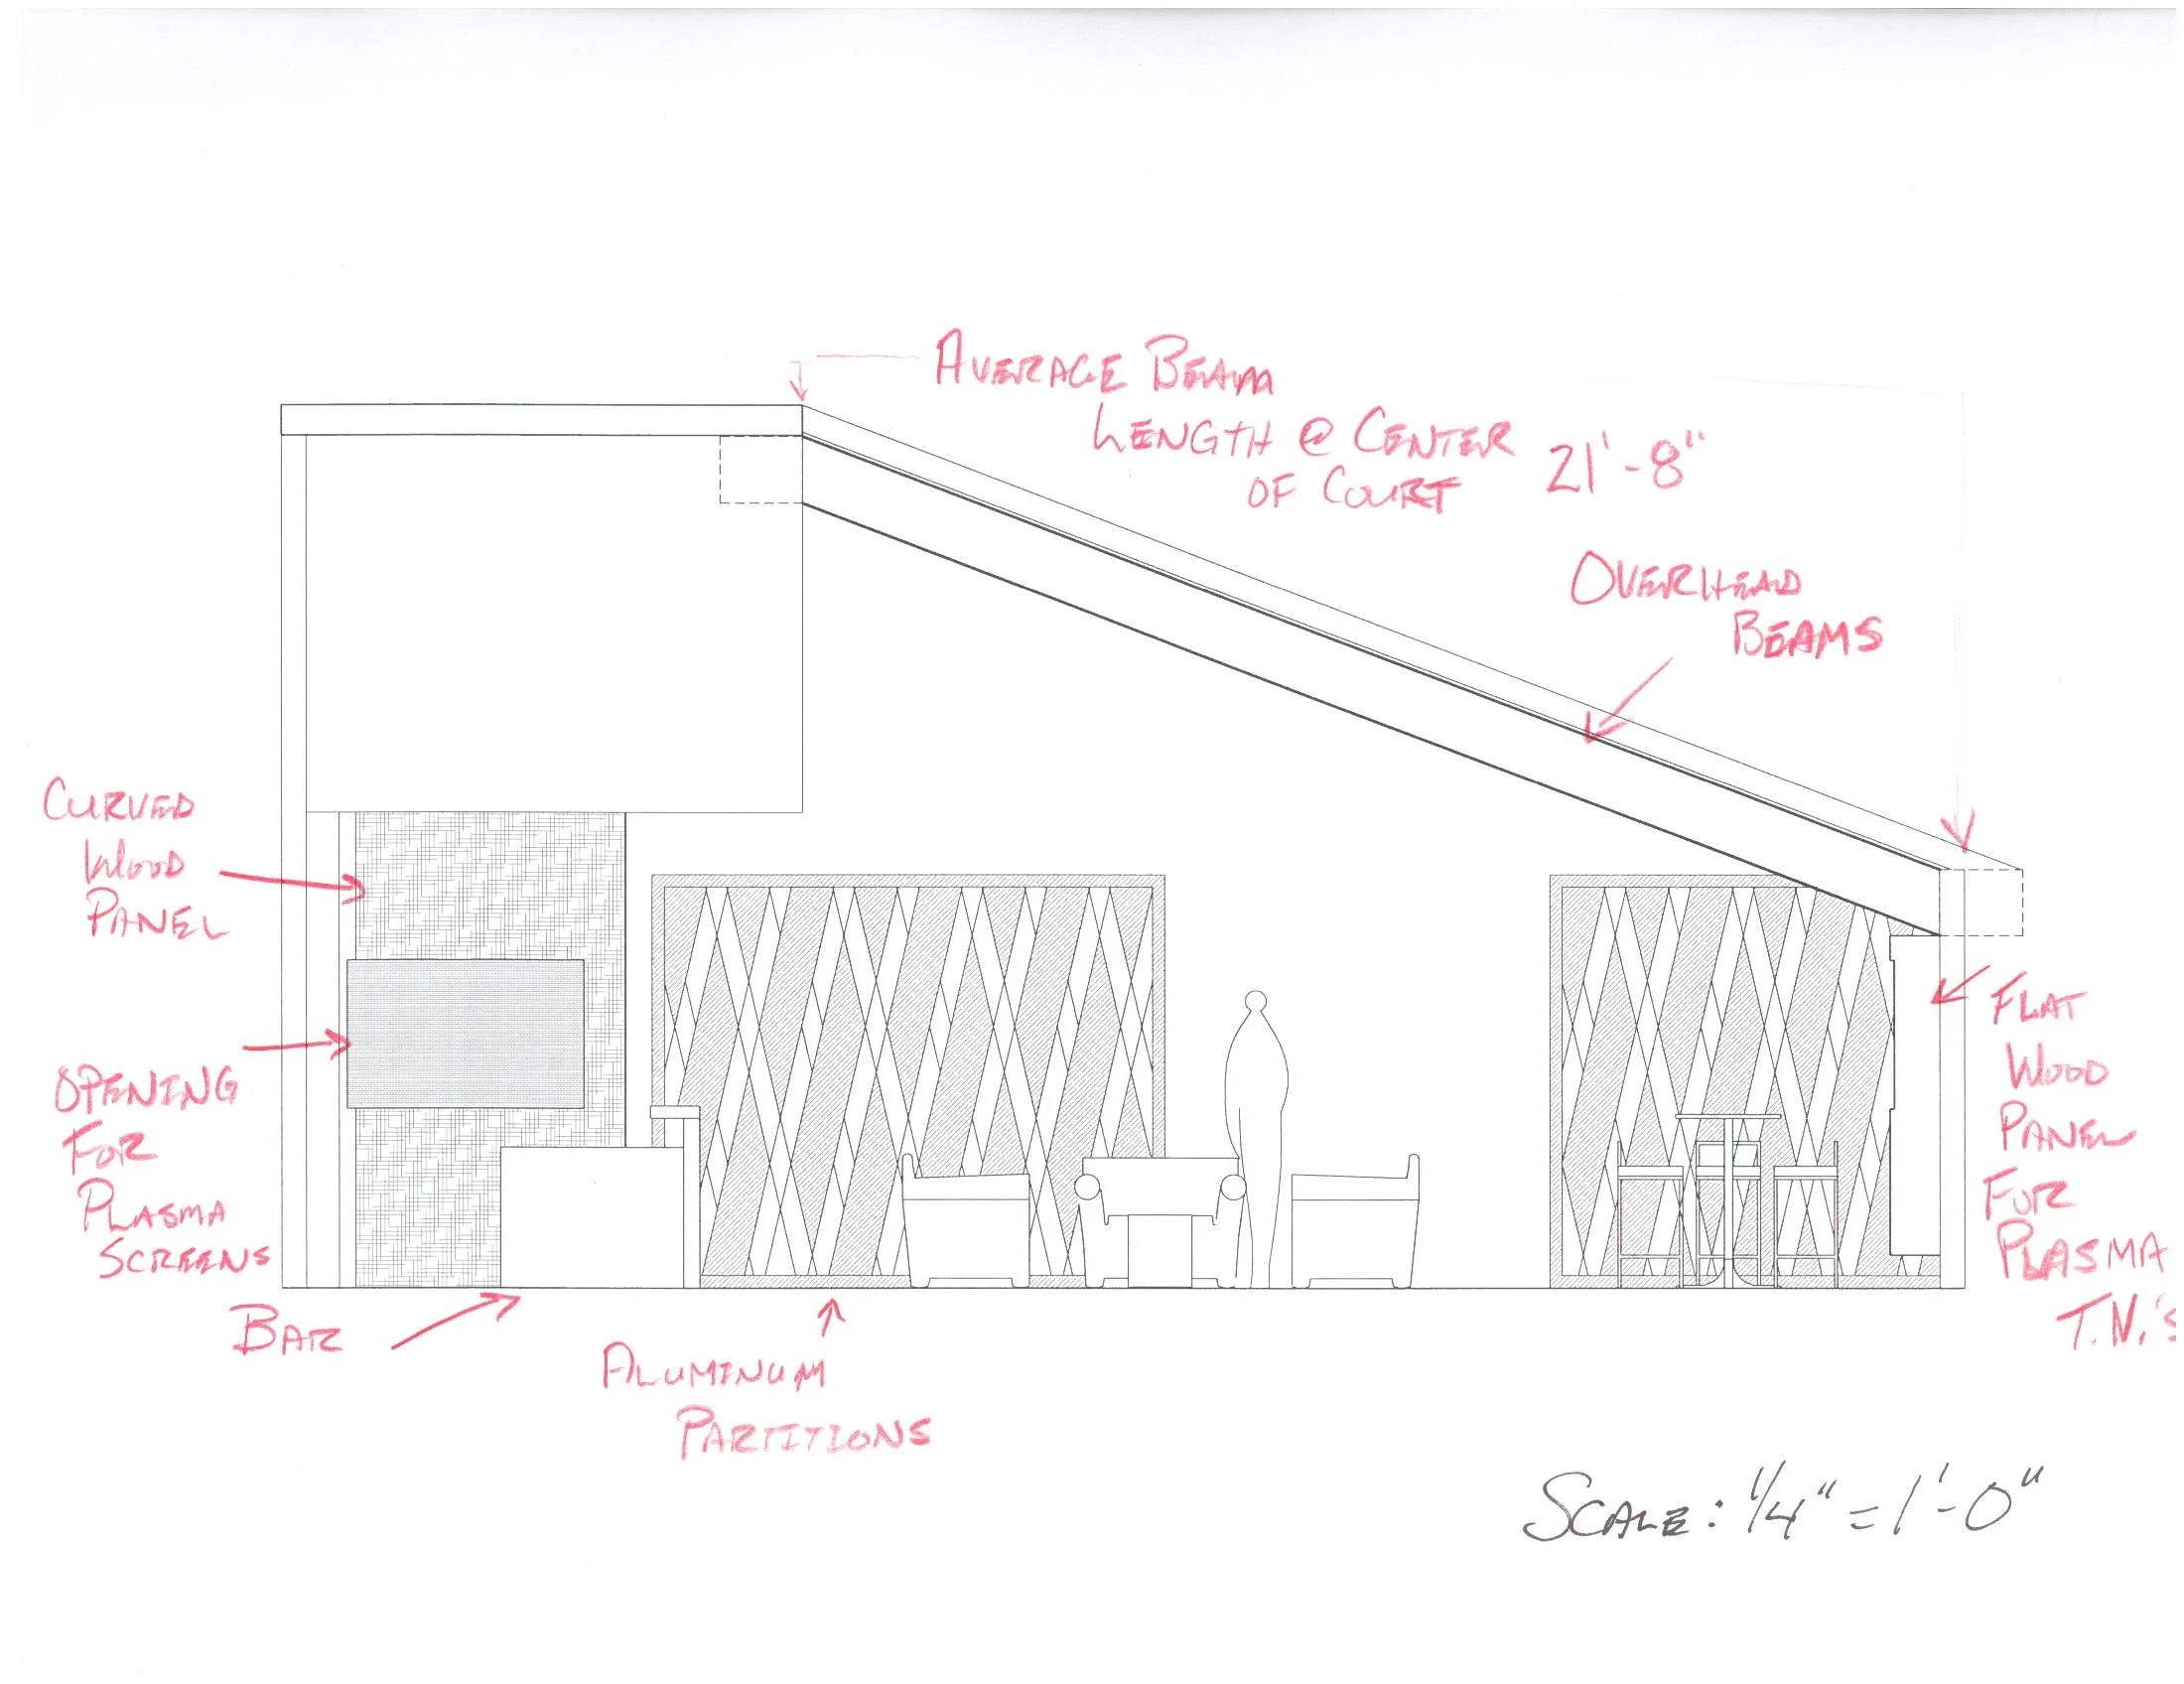 AVERAGE BEAM
LENGTH @ CENTER
OF COURT
21'-8"
OVERHEAD
BEAMS
CURVED
WOOD
PANEL
OPENING
FOR
PLASMA
SCREENS
BAR
ALUMINUM
PARTITIONS
FLAT
WOOD
PANEL
FOR
PLASMA
T.V.'S
SCALE: 1/4" = 1'-0"